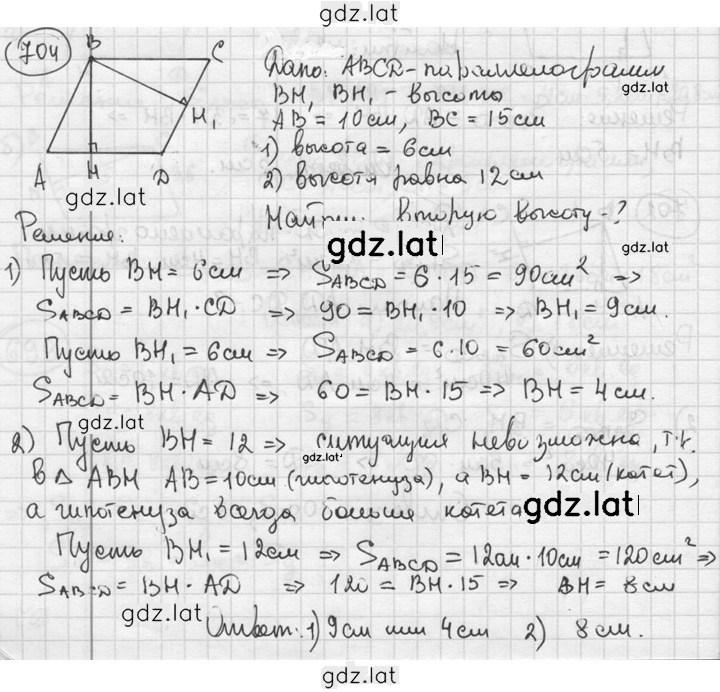 gdz.lat
704
B C
Дано: ABCD - параллелограмм
gdz.lat
BH, BH₁ - высоты
H₁
AB = 10см, BC = 15см
1) высота = 6см
A H D
2) высота равна 12см
gdz.lat
Найти: вторую высоту - ?
gdz.lat
gdz.lat
Решение:
1) Пусть BH = 6см => S_ABCD = 6 · 15 = 90см² =>
S_ABCD = BH₁ · CD => 90 = BH₁ · 10 => BH₁ = 9см.
Пусть BH₁ = 6см => S_ABCD = 6 · 10 = 60см²
S_ABCD = BH · AD => 60 = BH · 15 => BH = 4см.
gdz.lat
2) Пусть BH = 12 => ситуация невозможна, т.к.
gdz.lat
в △ ABH AB = 10см (гипотенуза), а BH = 12см (катет),
а гипотенуза всегда больше катета
gdz.lat
Пусть BH₁ = 12см => S_ABCD = 12см · 10см = 120см² =>
S_ABCD = BH · AD => 120 = BH · 15 => BH = 8см
Ответ: 1) 9см или 4см 2) 8см.
gdz.lat